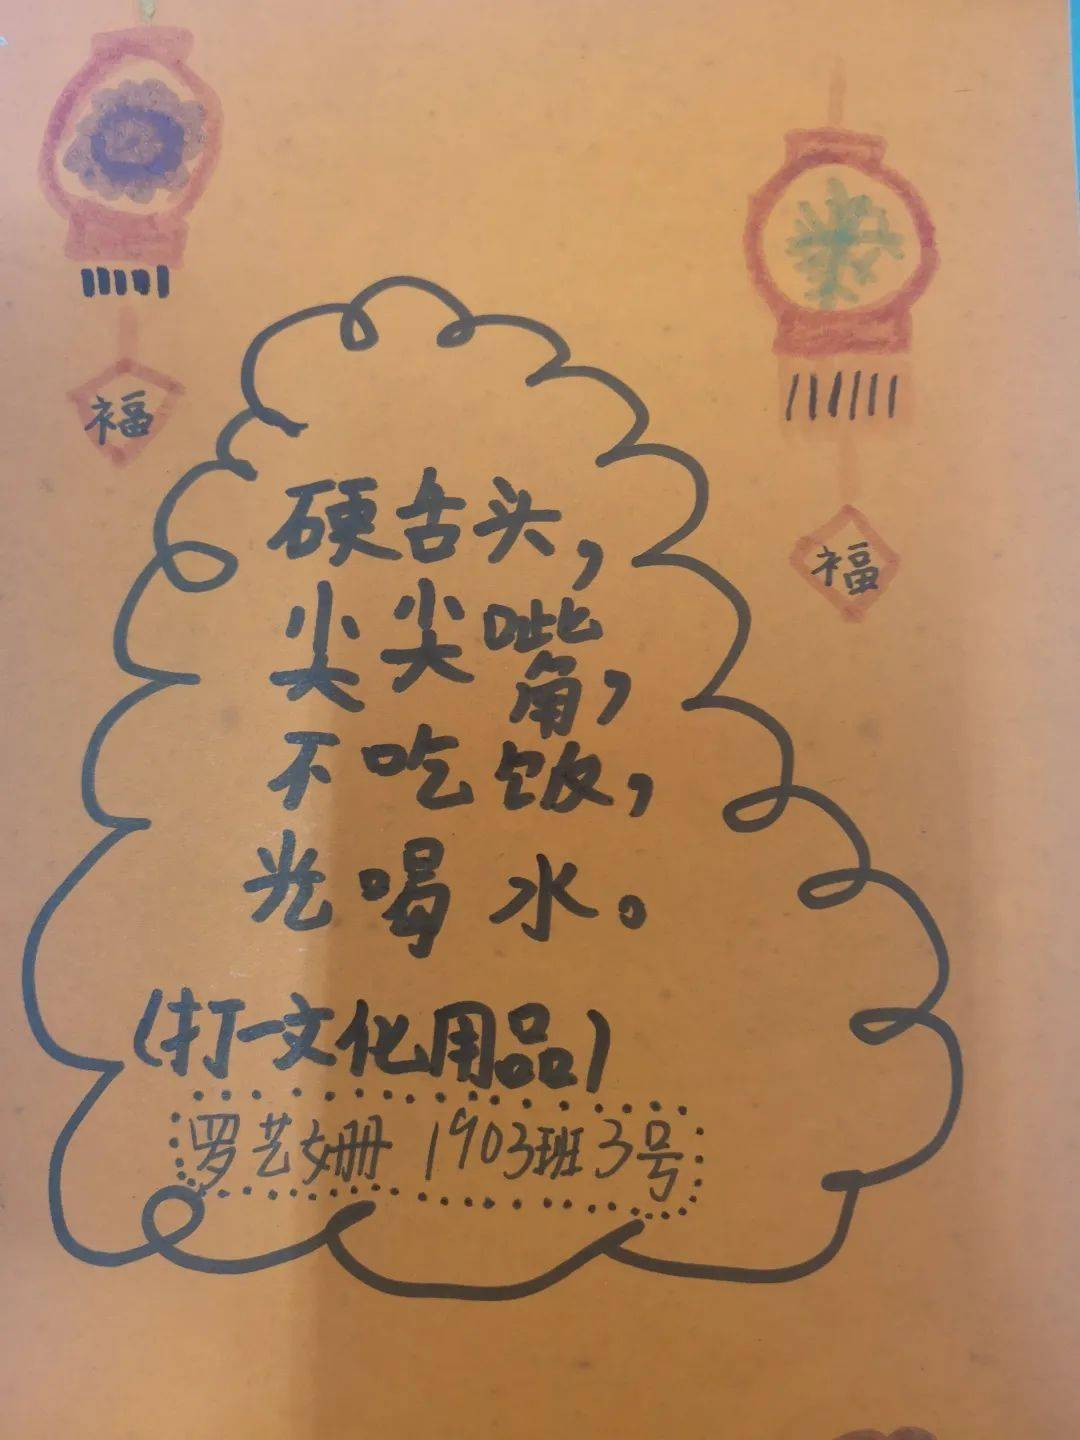 福
福
硬舌头，
尖尖嘴，
不吃饭，
光喝水。
（打一文化用品）
罗艺姗 1903班3号